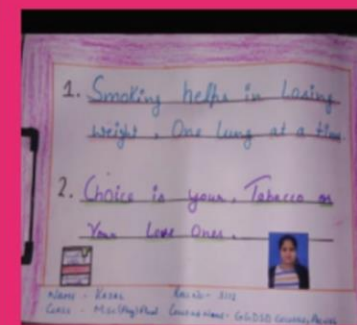 1. Smoking helps in Losing
weight, One lung at a time.
2. Choice is your, Tobacco or
Your Love Ones.
Name - Kajal Roll No - 3112
Class - M.Sc College Name - GGDSD College,